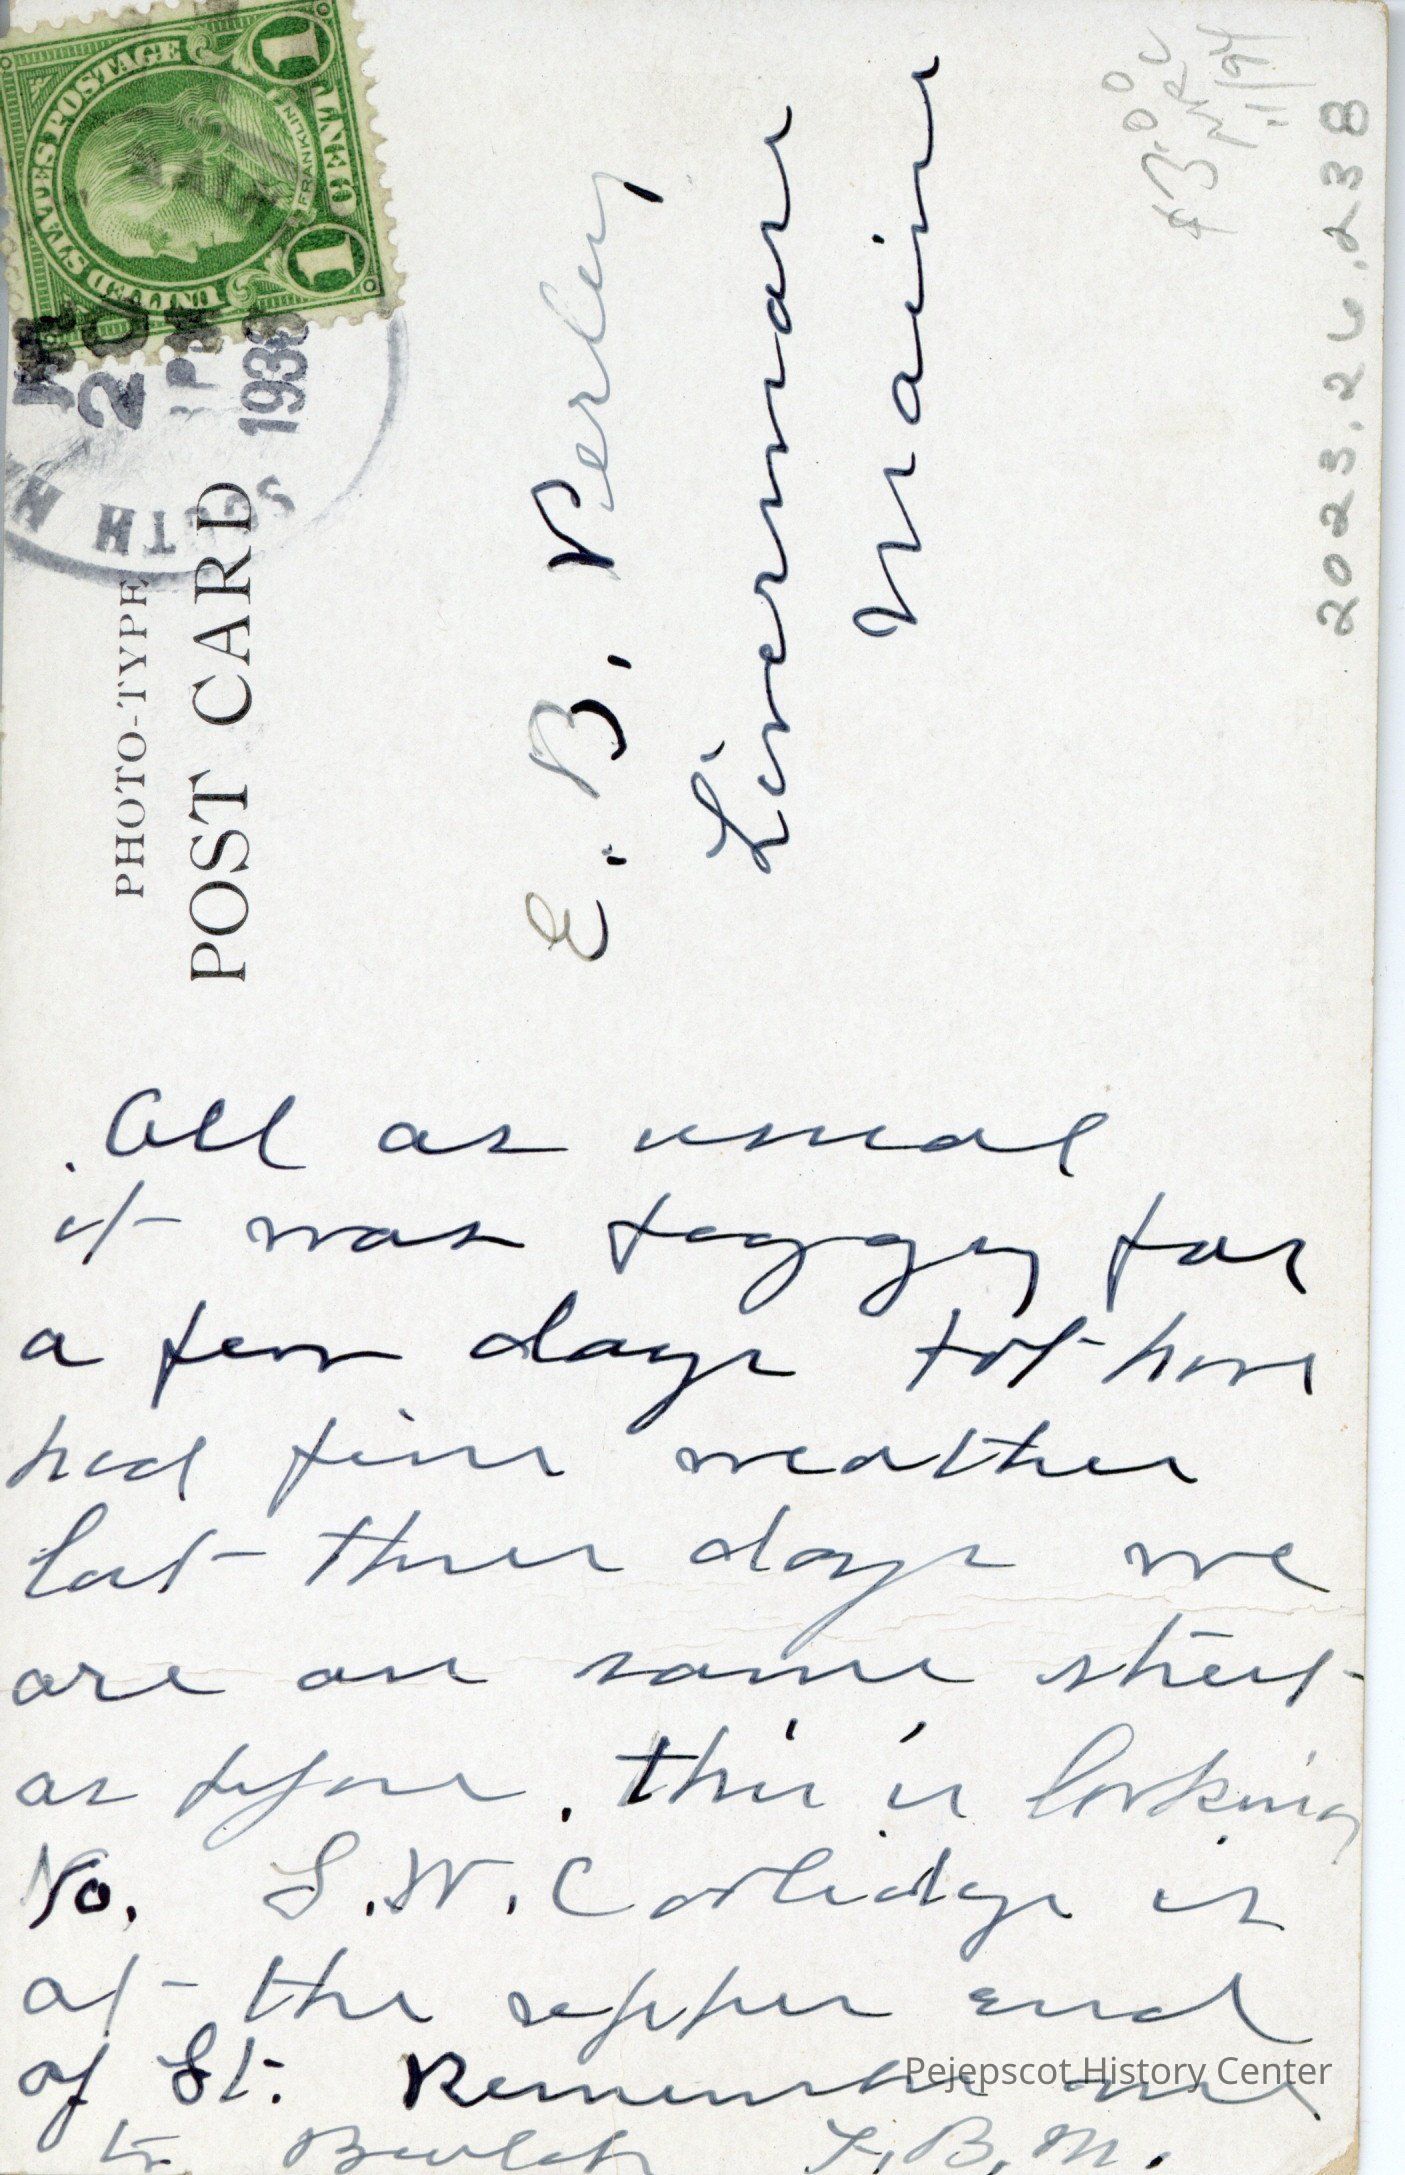 UNITED STATES POSTAGE
FRANKLIN
1 CENT 1
20
PM
193
SOUTH H
PHOTO-TYPE
POST CARD
E. B. Perley
Livermore
Maine
$3.00
11/94
2023.26.238
All as usual
it was foggy for
a few days but have
had fine weather
last three days we
are on same street
as before. this is looking
No. S. W. Coolidge is
at the upper end
of St. Remember me
to Beulah F. B. M.
Pejepscot History Center